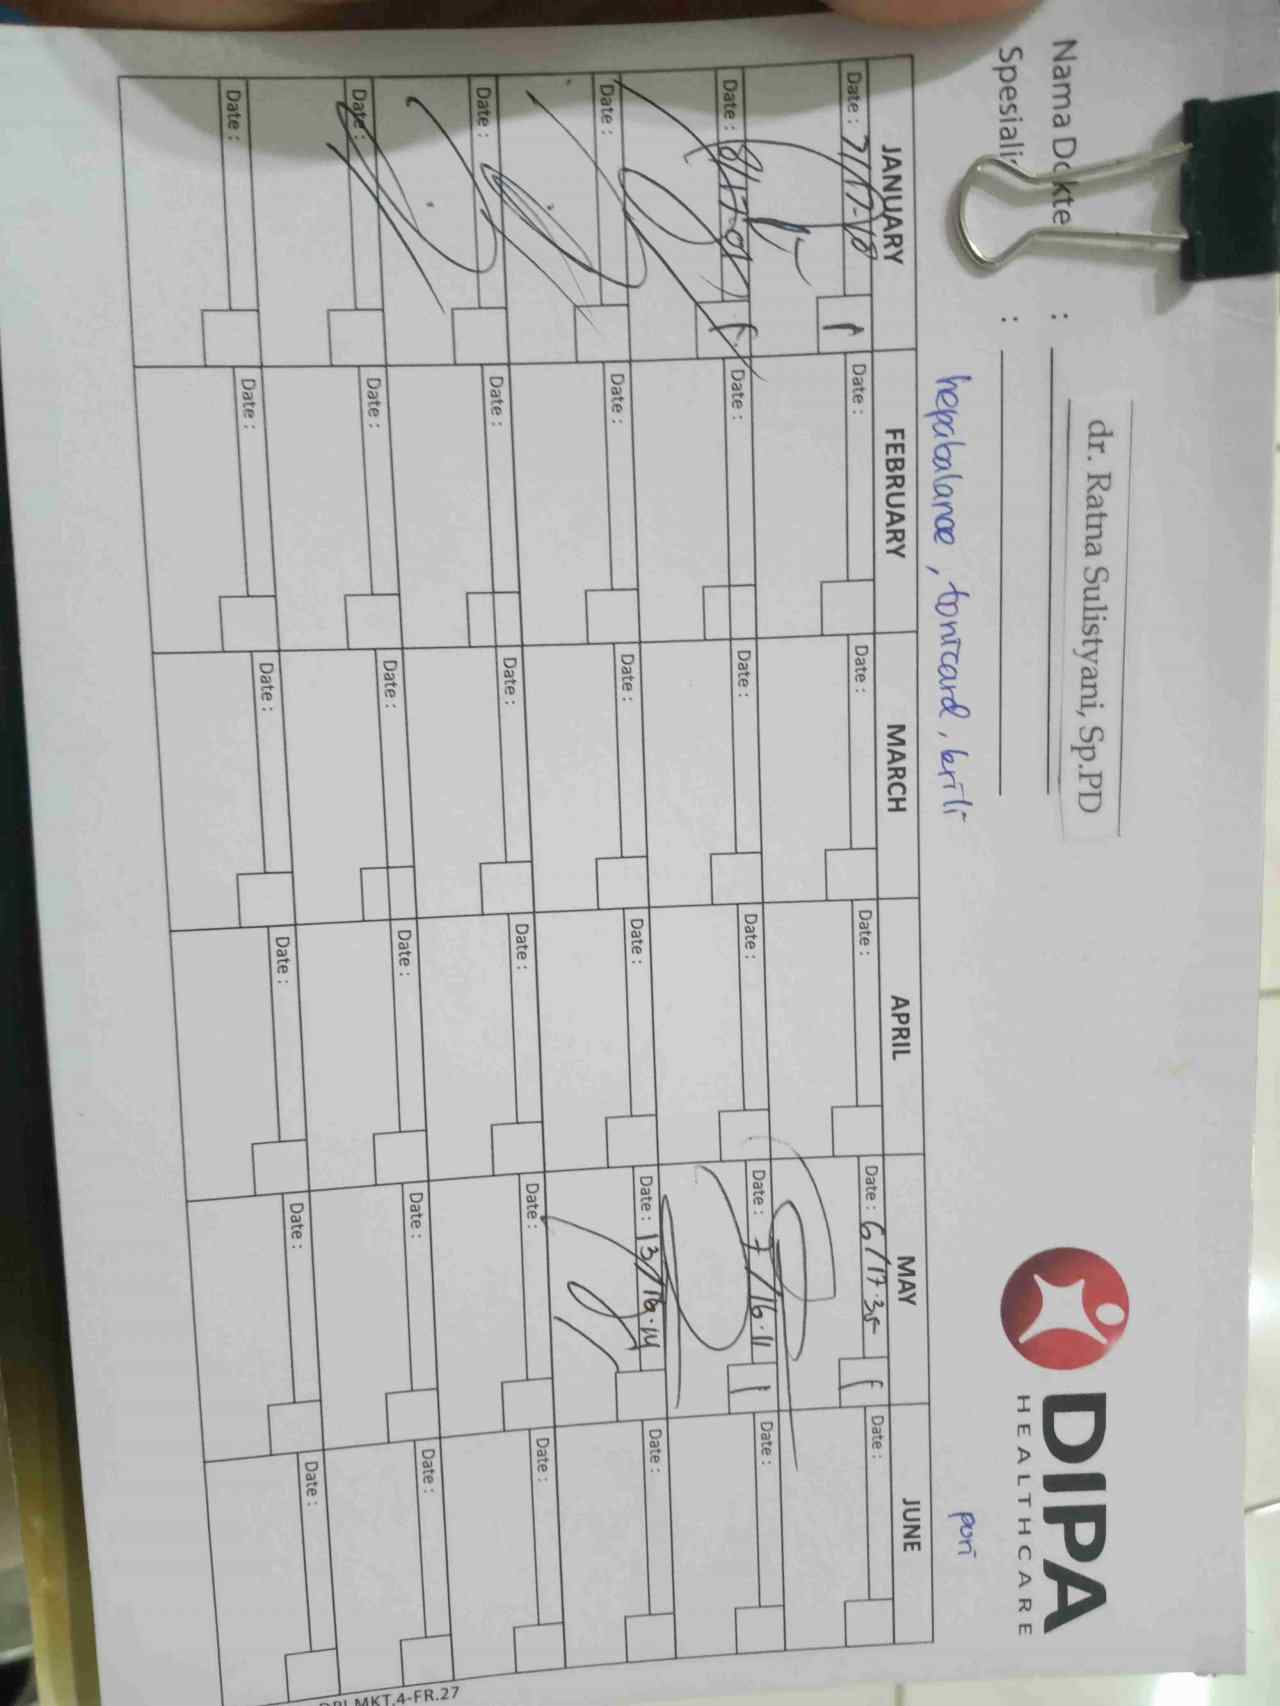 DIPA
HEALTHCARE
Nama Dokte : dr. Ratna Sulistyani, Sp.PD
Spesiali :
hepabalance, tonicard, brili puri
JANUARY FEBRUARY MARCH APRIL MAY JUNE
Date : 7/17-10 Date : Date : Date : Date : 6/17.35 Date :
Date : Date : Date : Date : Date : 7/16.11 Date :
Date : Date : Date : Date : Date : 13/16.14 Date :
Date : Date : Date : Date : Date : Date :
Date : Date : Date : Date : Date : Date :
Date : Date : Date : Date : Date : Date :
MKT.4-FR.27